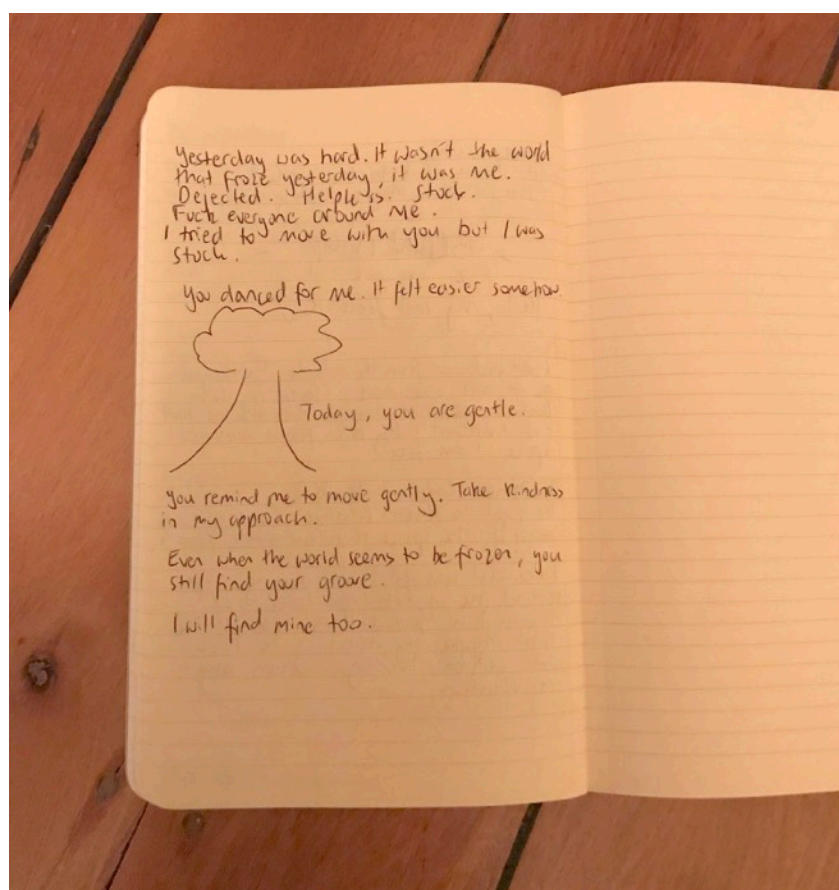 Yesterday was hard. It wasn't the world
that froze yesterday, it was me.
Dejected. Helpless. Stuck.
Fuck everyone around me.
I tried to move with you but I was
stuck.
You danced for me. It felt easier somehow.
Today, you are gentle.
You remind me to move gently. Take kindness
in my approach.
Even when the world seems to be frozen, you
still find your groove.
I will find mine too.